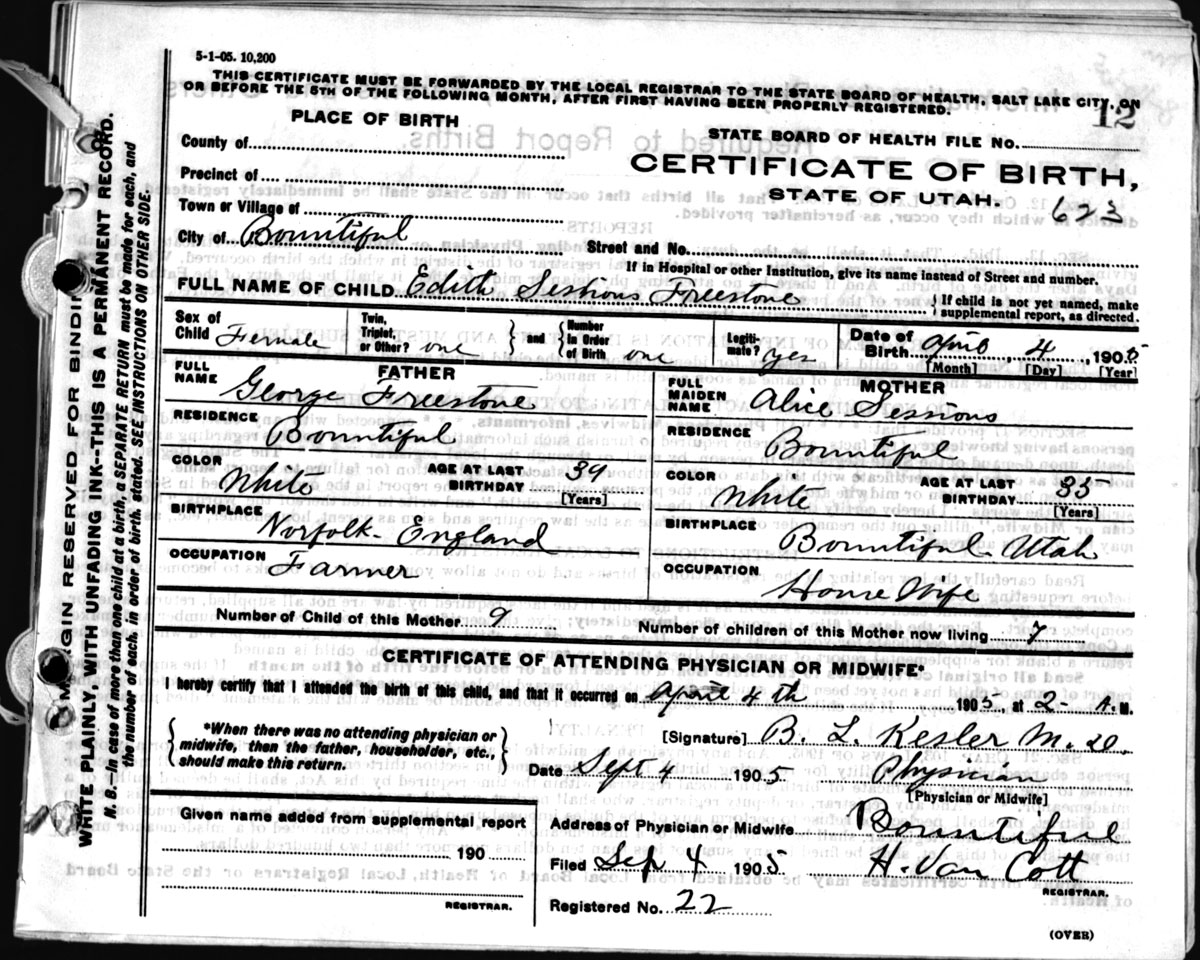 5-1-05. 10,200
THIS CERTIFICATE MUST BE FORWARDED BY THE LOCAL REGISTRAR TO THE STATE BOARD OF HEALTH, SALT LAKE CITY, ON
OR BEFORE THE 5TH OF THE FOLLOWING MONTH, AFTER FIRST HAVING BEEN PROPERLY REGISTERED.
12
PLACE OF BIRTH
STATE BOARD OF HEALTH FILE NO.
County of
CERTIFICATE OF BIRTH,
Precinct of
STATE OF UTAH.
623
Town or Village of
City of Bountiful Street and No.
If in Hospital or other Institution, give its name instead of Street and number.
FULL NAME OF CHILD Edith Sessions Freestone } If child is not yet named, make
supplemental report, as directed.
Sex of Child Female
Twin, Triplet, or Other? one } and { Number in Order of Birth one
Legiti-mate? yes
Date of Birth April, 4, 1905
[Month] [Day] [Year]
FATHER
FULL NAME George Freestone
MOTHER
FULL MAIDEN NAME Alice Sessions
RESIDENCE Bountiful
RESIDENCE Bountiful
COLOR White AGE AT LAST BIRTHDAY 39 [Years]
COLOR White AGE AT LAST BIRTHDAY 35 [Years]
BIRTHPLACE Norfolk England
BIRTHPLACE Bountiful Utah
OCCUPATION Farmer
OCCUPATION House Wife
Number of Child of this Mother 9 Number of children of this Mother now living 7
CERTIFICATE OF ATTENDING PHYSICIAN OR MIDWIFE*
I hereby certify that I attended the birth of this child, and that it occurred on April 4th 1905, at 2- A.M.
{ *When there was no attending physician or
midwife, then the father, householder, etc.,
should make this return. }
[Signature] B. L. Kesler M.D.
Date Sept 4 1905. Physician
[Physician or Midwife]
Given name added from supplemental report
190
REGISTRAR.
Address of Physician or Midwife Bountiful
Filed Sep 4 1905. H. Van Cott
REGISTRAR.
Registered No. 22
(OVER)
MARGIN RESERVED FOR BINDING
WRITE PLAINLY, WITH UNFADING INK--THIS IS A PERMANENT RECORD.
N. B.--In case of more than one child at a birth, a SEPARATE RETURN must be made for each, and
the number of each, in order of birth, stated. SEE INSTRUCTIONS ON OTHER SIDE.